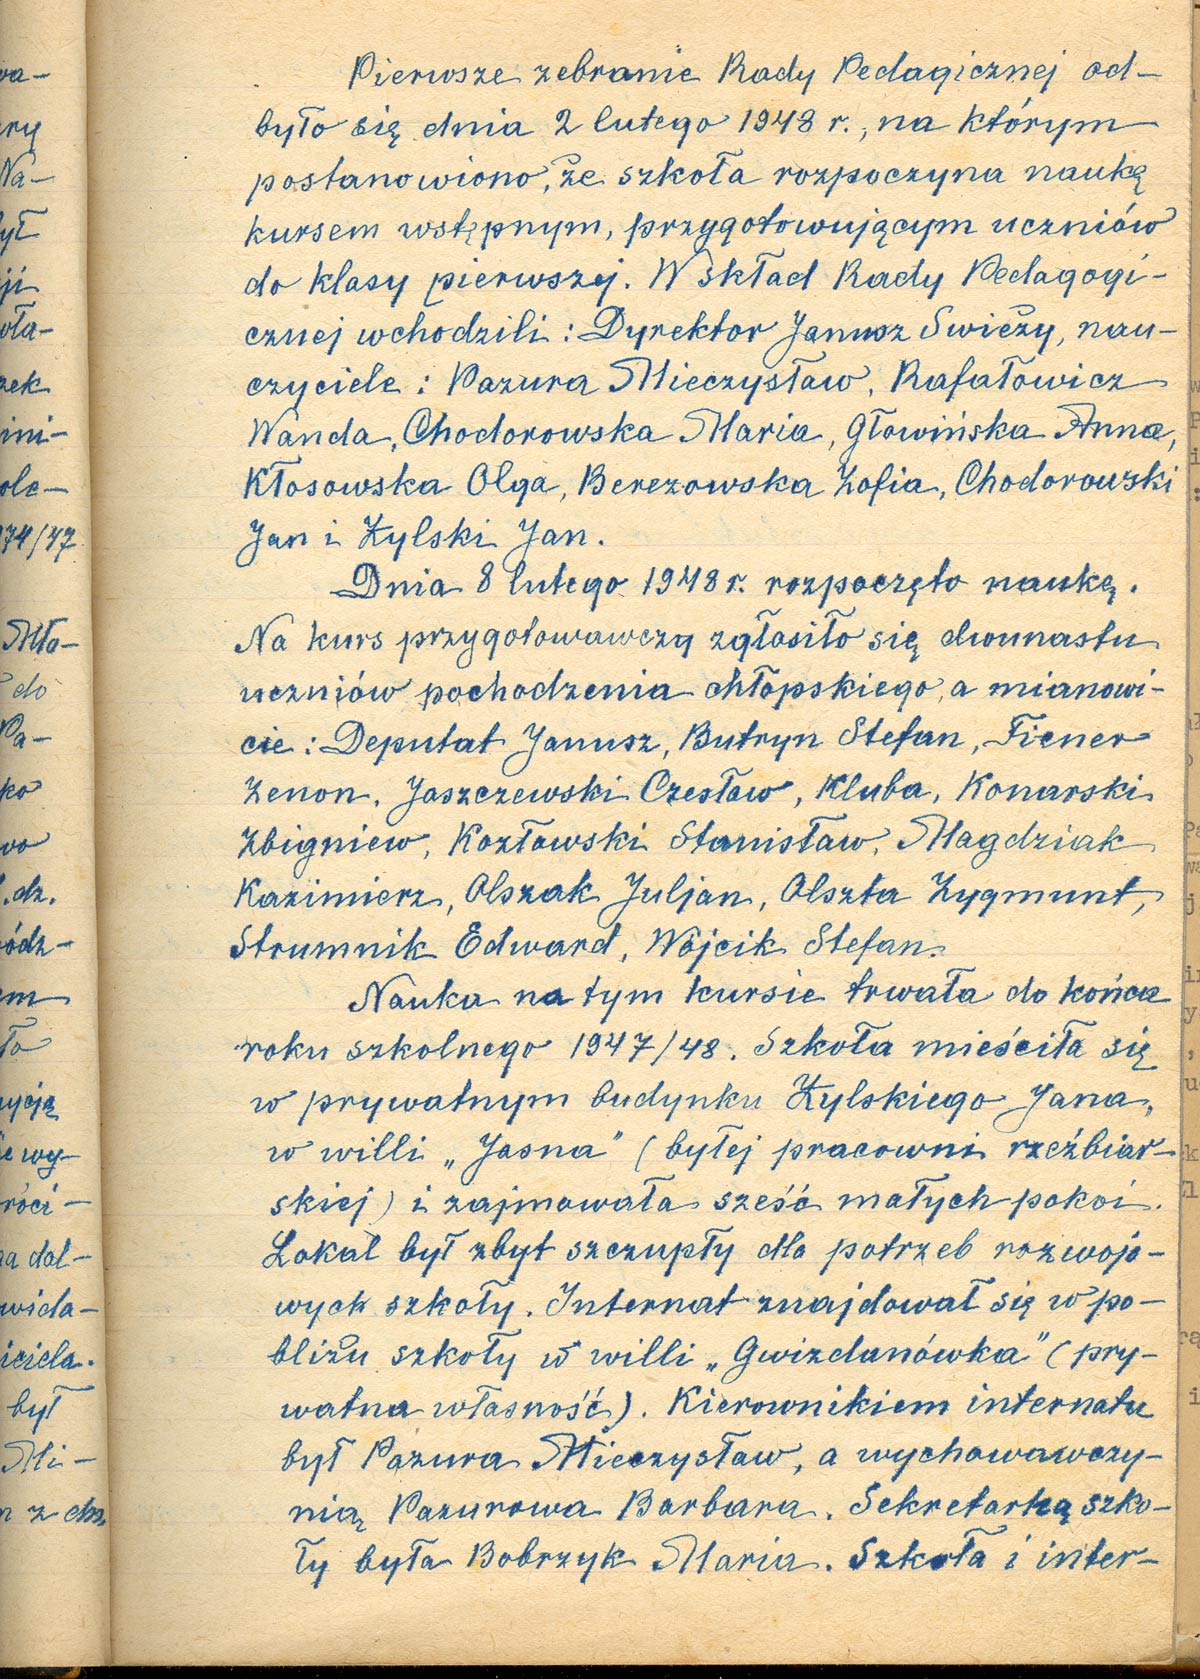 Pierwsze zebranie Rady Pedagicznej od-
było się dnia 2 lutego 1948 r., na którym
postanowiono, że szkoła rozpoczyna naukę
kursem wstępnym, przygotowującym uczniów
do klasy pierwszej. W skład Rady Pedagogi-
cznej wchodzili: Dyrektor Janusz Świeży, nau-
czyciele: Pazura Mieczysław, Rafałowicz
Wanda, Chodorowska Maria, Głowińska Anna,
Kłosowska Olga, Berezowska Zofia, Chodorowski
Jan i Żylski Jan.
Dnia 8 lutego 1948 r. rozpoczęto naukę.
Na kurs przygotowawczy zgłosiło się dwunastu
uczniów pochodzenia chłopskiego, a mianowi-
cie: Deputat Janusz, Butryn Stefan, Fiener
Zenon, Jaszczewski Czesław, Kluba, Konarski
Zbigniew, Kozłowski Stanisław, Magdziak
Kazimierz, Olszak Juljan, Olszta Zygmunt,
Strumnik Edward, Wójcik Stefan.
Nauka na tym kursie trwała do końca
roku szkolnego 1947/48. Szkoła mieściła się
w prywatnym budynku Żylskiego Jana,
w willi „Jasna" (byłej pracowni rzeźbiar-
skiej) i zajmowała sześć małych pokoi.
Lokal był zbyt szczupły dla potrzeb rozwojo-
wych szkoły. Internat znajdował się w po-
bliżu szkoły w willi „Gwizdanówka" (pry-
watna własność). Kierownikiem internatu
był Pazura Mieczysław, a wychowawczy-
nią Pazurowa Barbara. Sekretarką szko-
ły była Bobrzyk Maria. Szkoła i inter-